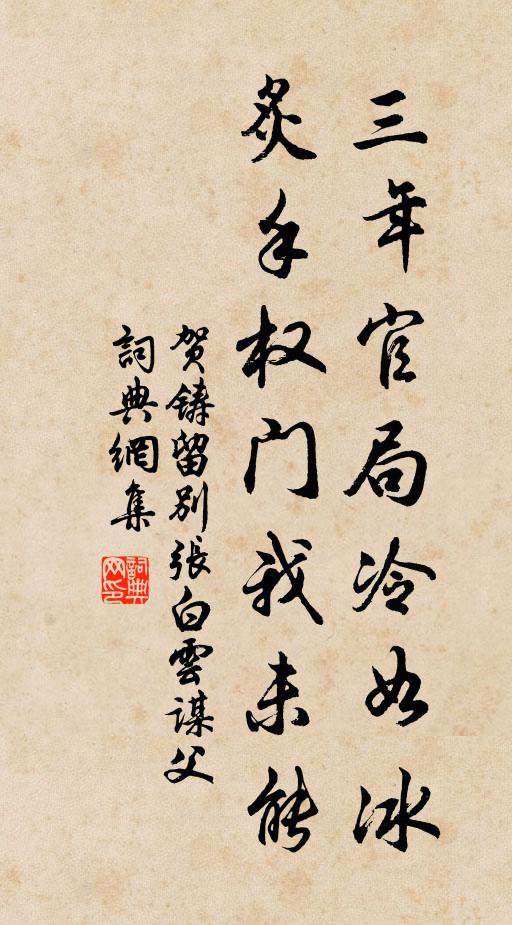 三年官局冷如冰
炙手权门我未能
贺铸留别張白雲谋父
詞典網集
詞典网印